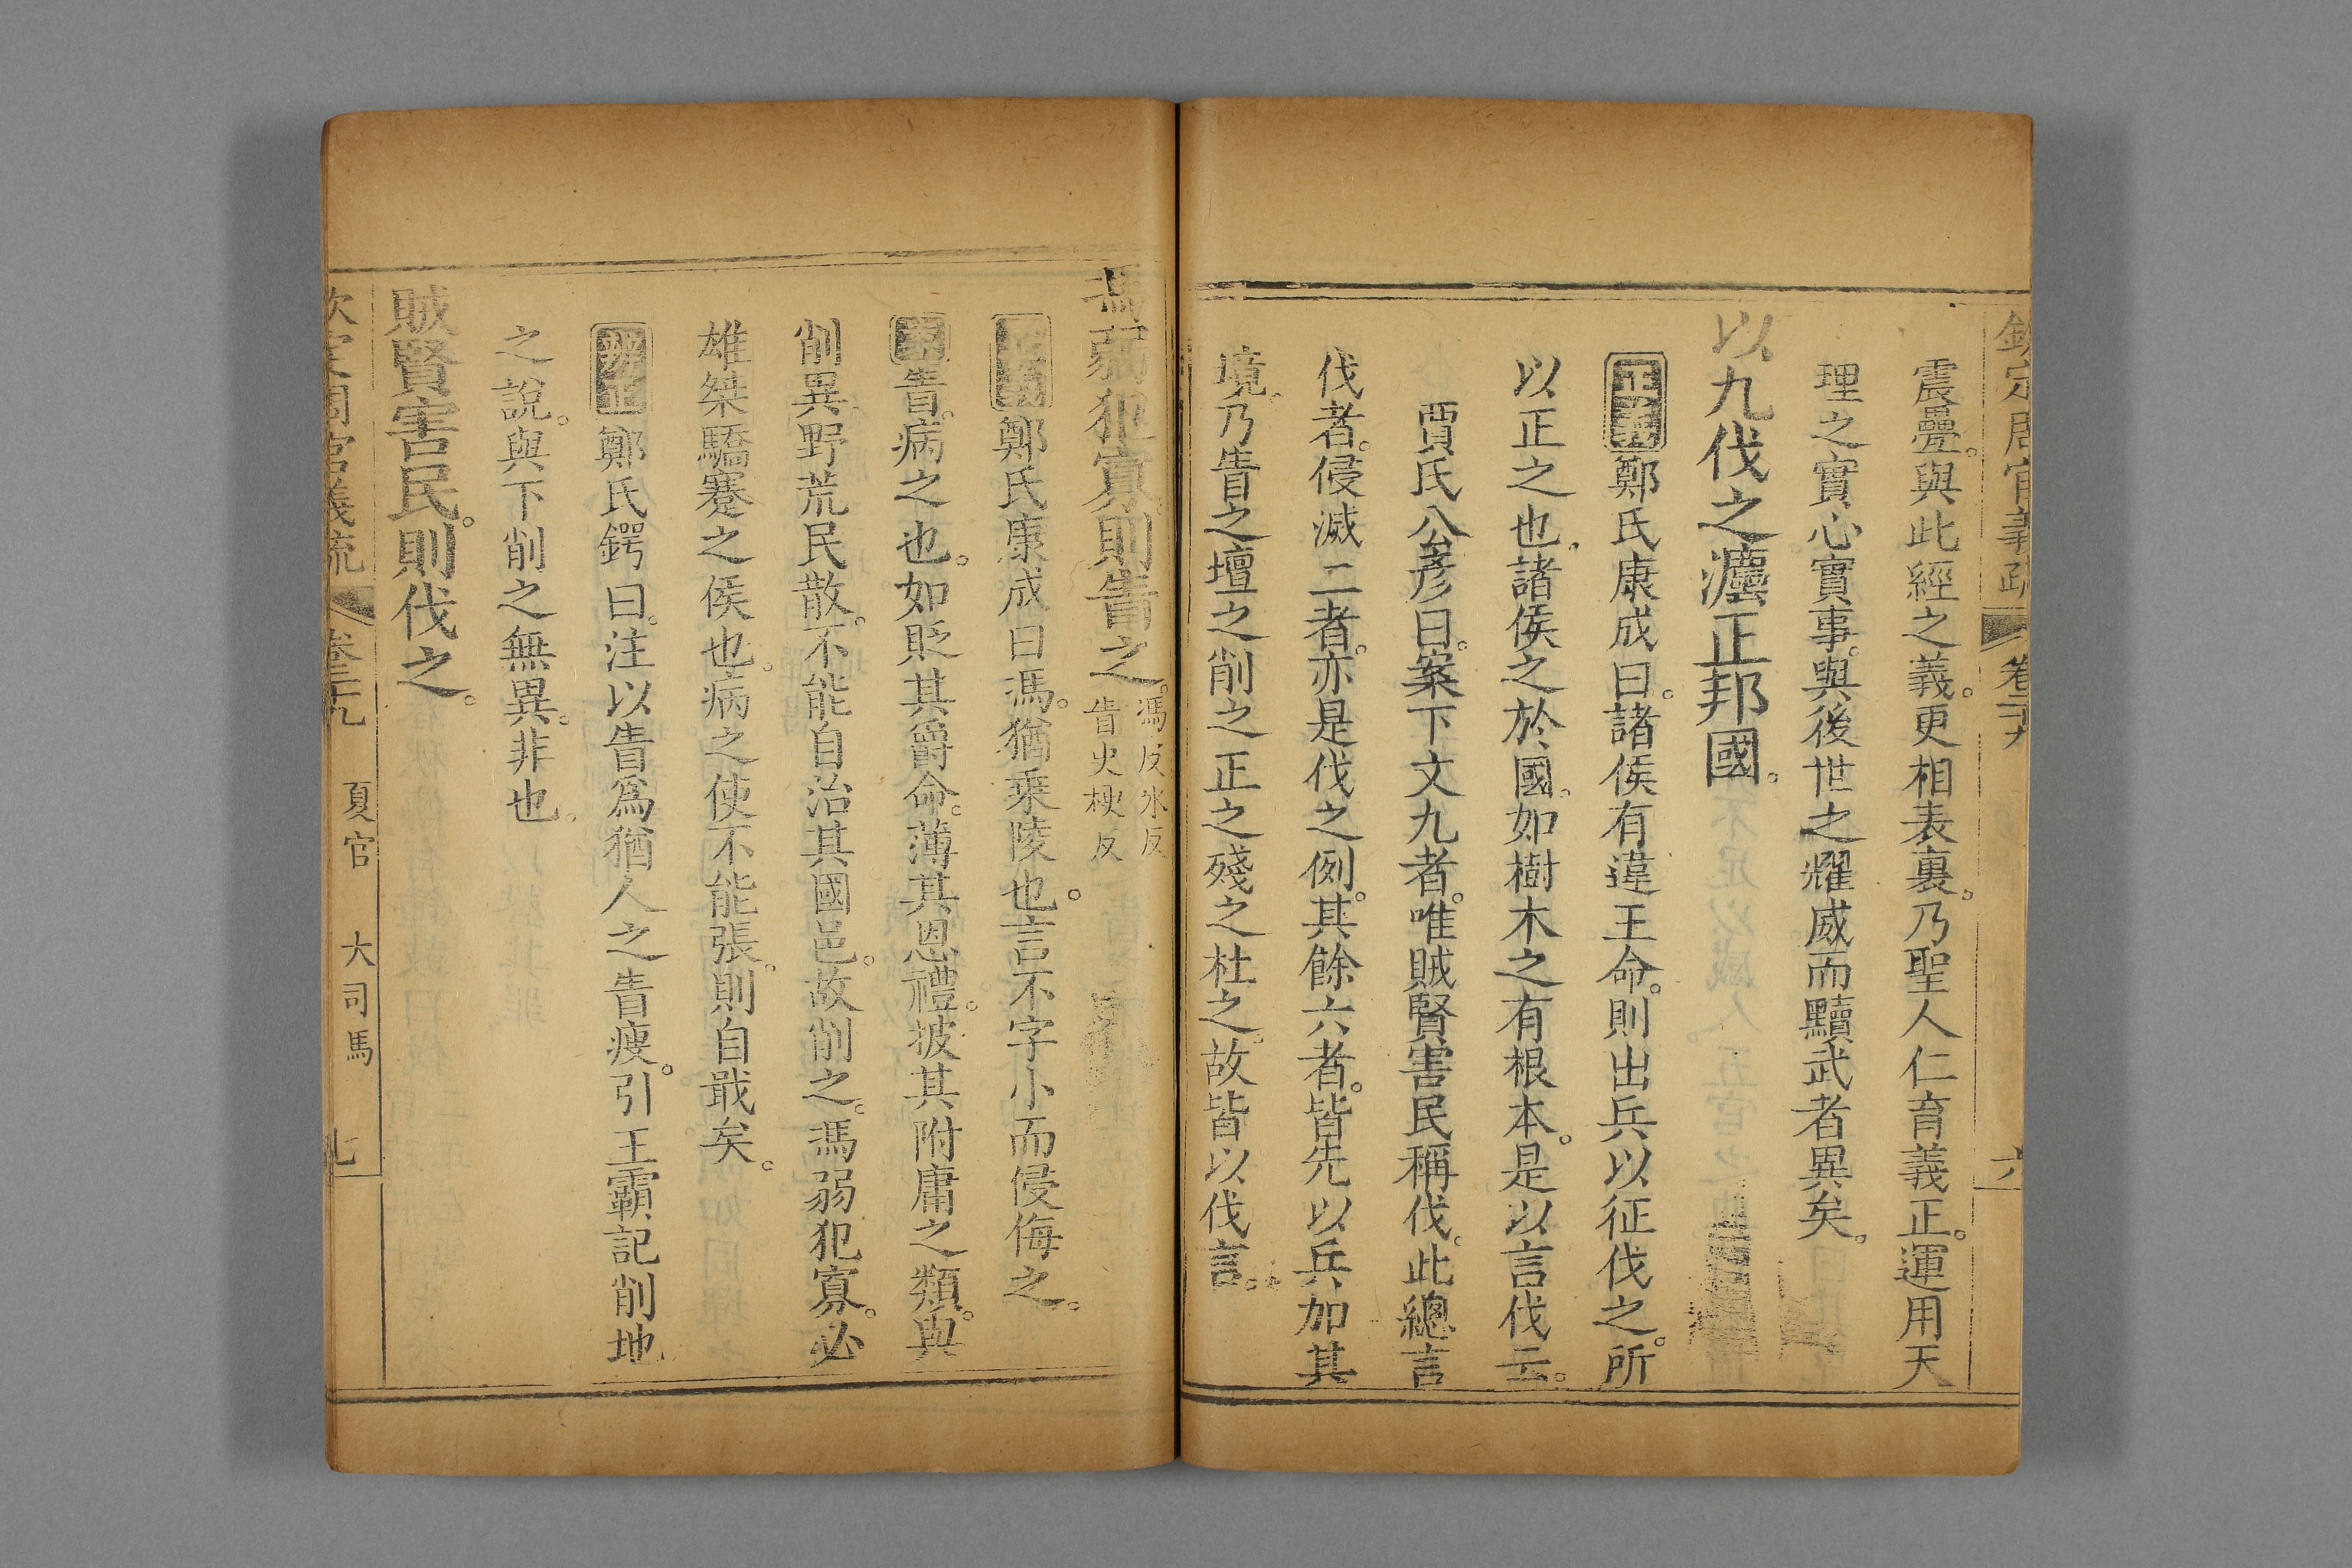 欽定周官義疏 卷二十九 六
震疊。與此經之義。更相表裏。乃聖人仁育義正。運用天
理之實心實事。與後世之耀威而黷武者異矣。
以九伐之灋正邦國。
正義鄭氏康成曰。諸侯有違王命。則出兵以征伐之。所
以正之也。諸侯之於國。如樹木之有根本。是以言伐云。
賈氏公彥曰。案下文九者。唯賊賢害民稱伐。此總言
伐者。侵滅二者。亦是伐之例。其餘六者。皆先以兵加其
境。乃眚之壇之削之正之殘之杜之。故皆以伐言。
馮弱犯寡。則眚之。馮皮冰反
眚史梗反
正義鄭氏康成曰。馮。猶乘陵也。言不字小而侵侮之。
案眚。病之也。如貶其爵命。薄其恩禮。披其附庸之類。與
削異。野荒民散。不能自治其國邑。故削之。馮弱犯寡。必
雄桀驕蹇之侯也。病之使不能張。則自戢矣。
辨正鄭氏鍔曰。注以眚爲猶人之眚瘦。引王霸記削地
之說。與下削之無異。非也。
賊賢害民。則伐之。
欽定周官義疏 卷二十九 夏官 大司馬 七